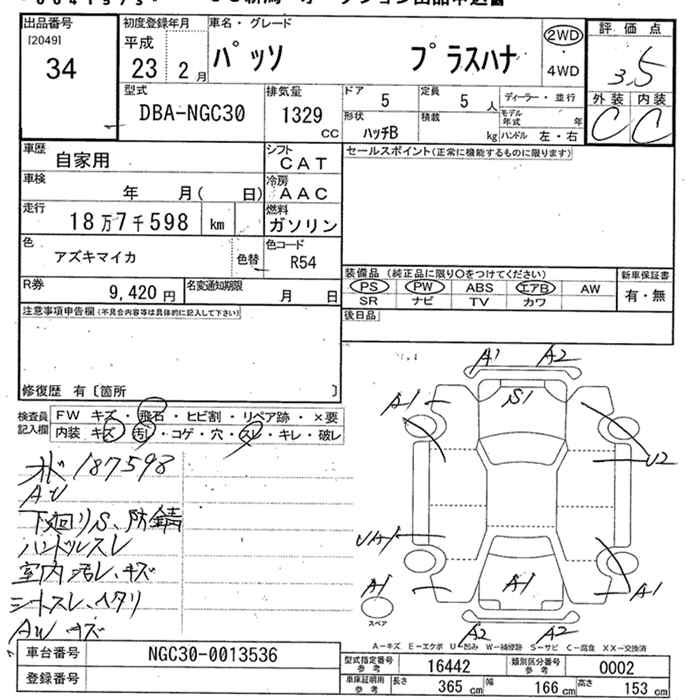 出品番号 初度登録年月 車名・グレード 評価点
[2049] 平成 2WD
34 23 2月 パッソ プラスハナ 4WD 3.5
型式 排気量 ドア 定員 ディーラー・並行 外装 内装
DBA-NGC30 1329 cc 5 5人 モデル年式 年 C C
形状 積載
ハッチB kg ハンドル 左・右
車歴 自家用 シフト CAT セールスポイント(正常に機能するものに限ります)
車検 年 月( 日) 冷房 AAC
走行 18万7千598 km 燃料 ガソリン
色 アズキマイカ 色替 色コード R54
装備品(純正品に限り○をつけてください) 新車保証書
R券 9,420円 名変通知期限 月 日 PS PW ABS エアB AW 有・無
SR ナビ TV カワ
注意事項申告欄(不具合内容等は具体的に記入して下さい) 後日品
修復歴 有〔箇所 〕
検査員記入欄 FW キズ・飛石・ヒビ割・リペア跡・×要
内装 キズ・汚レ・コゲ・穴・スレ・キレ・破レ
オド187598
AU
下廻りS、防錆
ハンドルスレ
室内汚レ、キズ
シートスレ、ヘタリ
AWキズ
A1 A2
S1
A1
U2
UA1
A1
A1
A1
スペア
A2 A2
A-キズ E-エクボ U-凹み W-補修跡 S-サビ C-腐食 XX-交換済
車台番号 NGC30-0013536
登録番号
型式指定番号 参考 16442 類別区分番号 参考 0002
車庫証明用 参考 長さ 365cm 幅 166cm 高さ 153cm